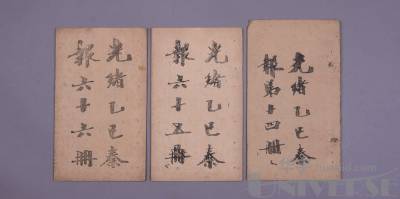 光緒乙巳秦
報第十四冊
光緒乙巳秦
報六十五冊
光緒乙巳秦
報六十六冊
UNIVERSE